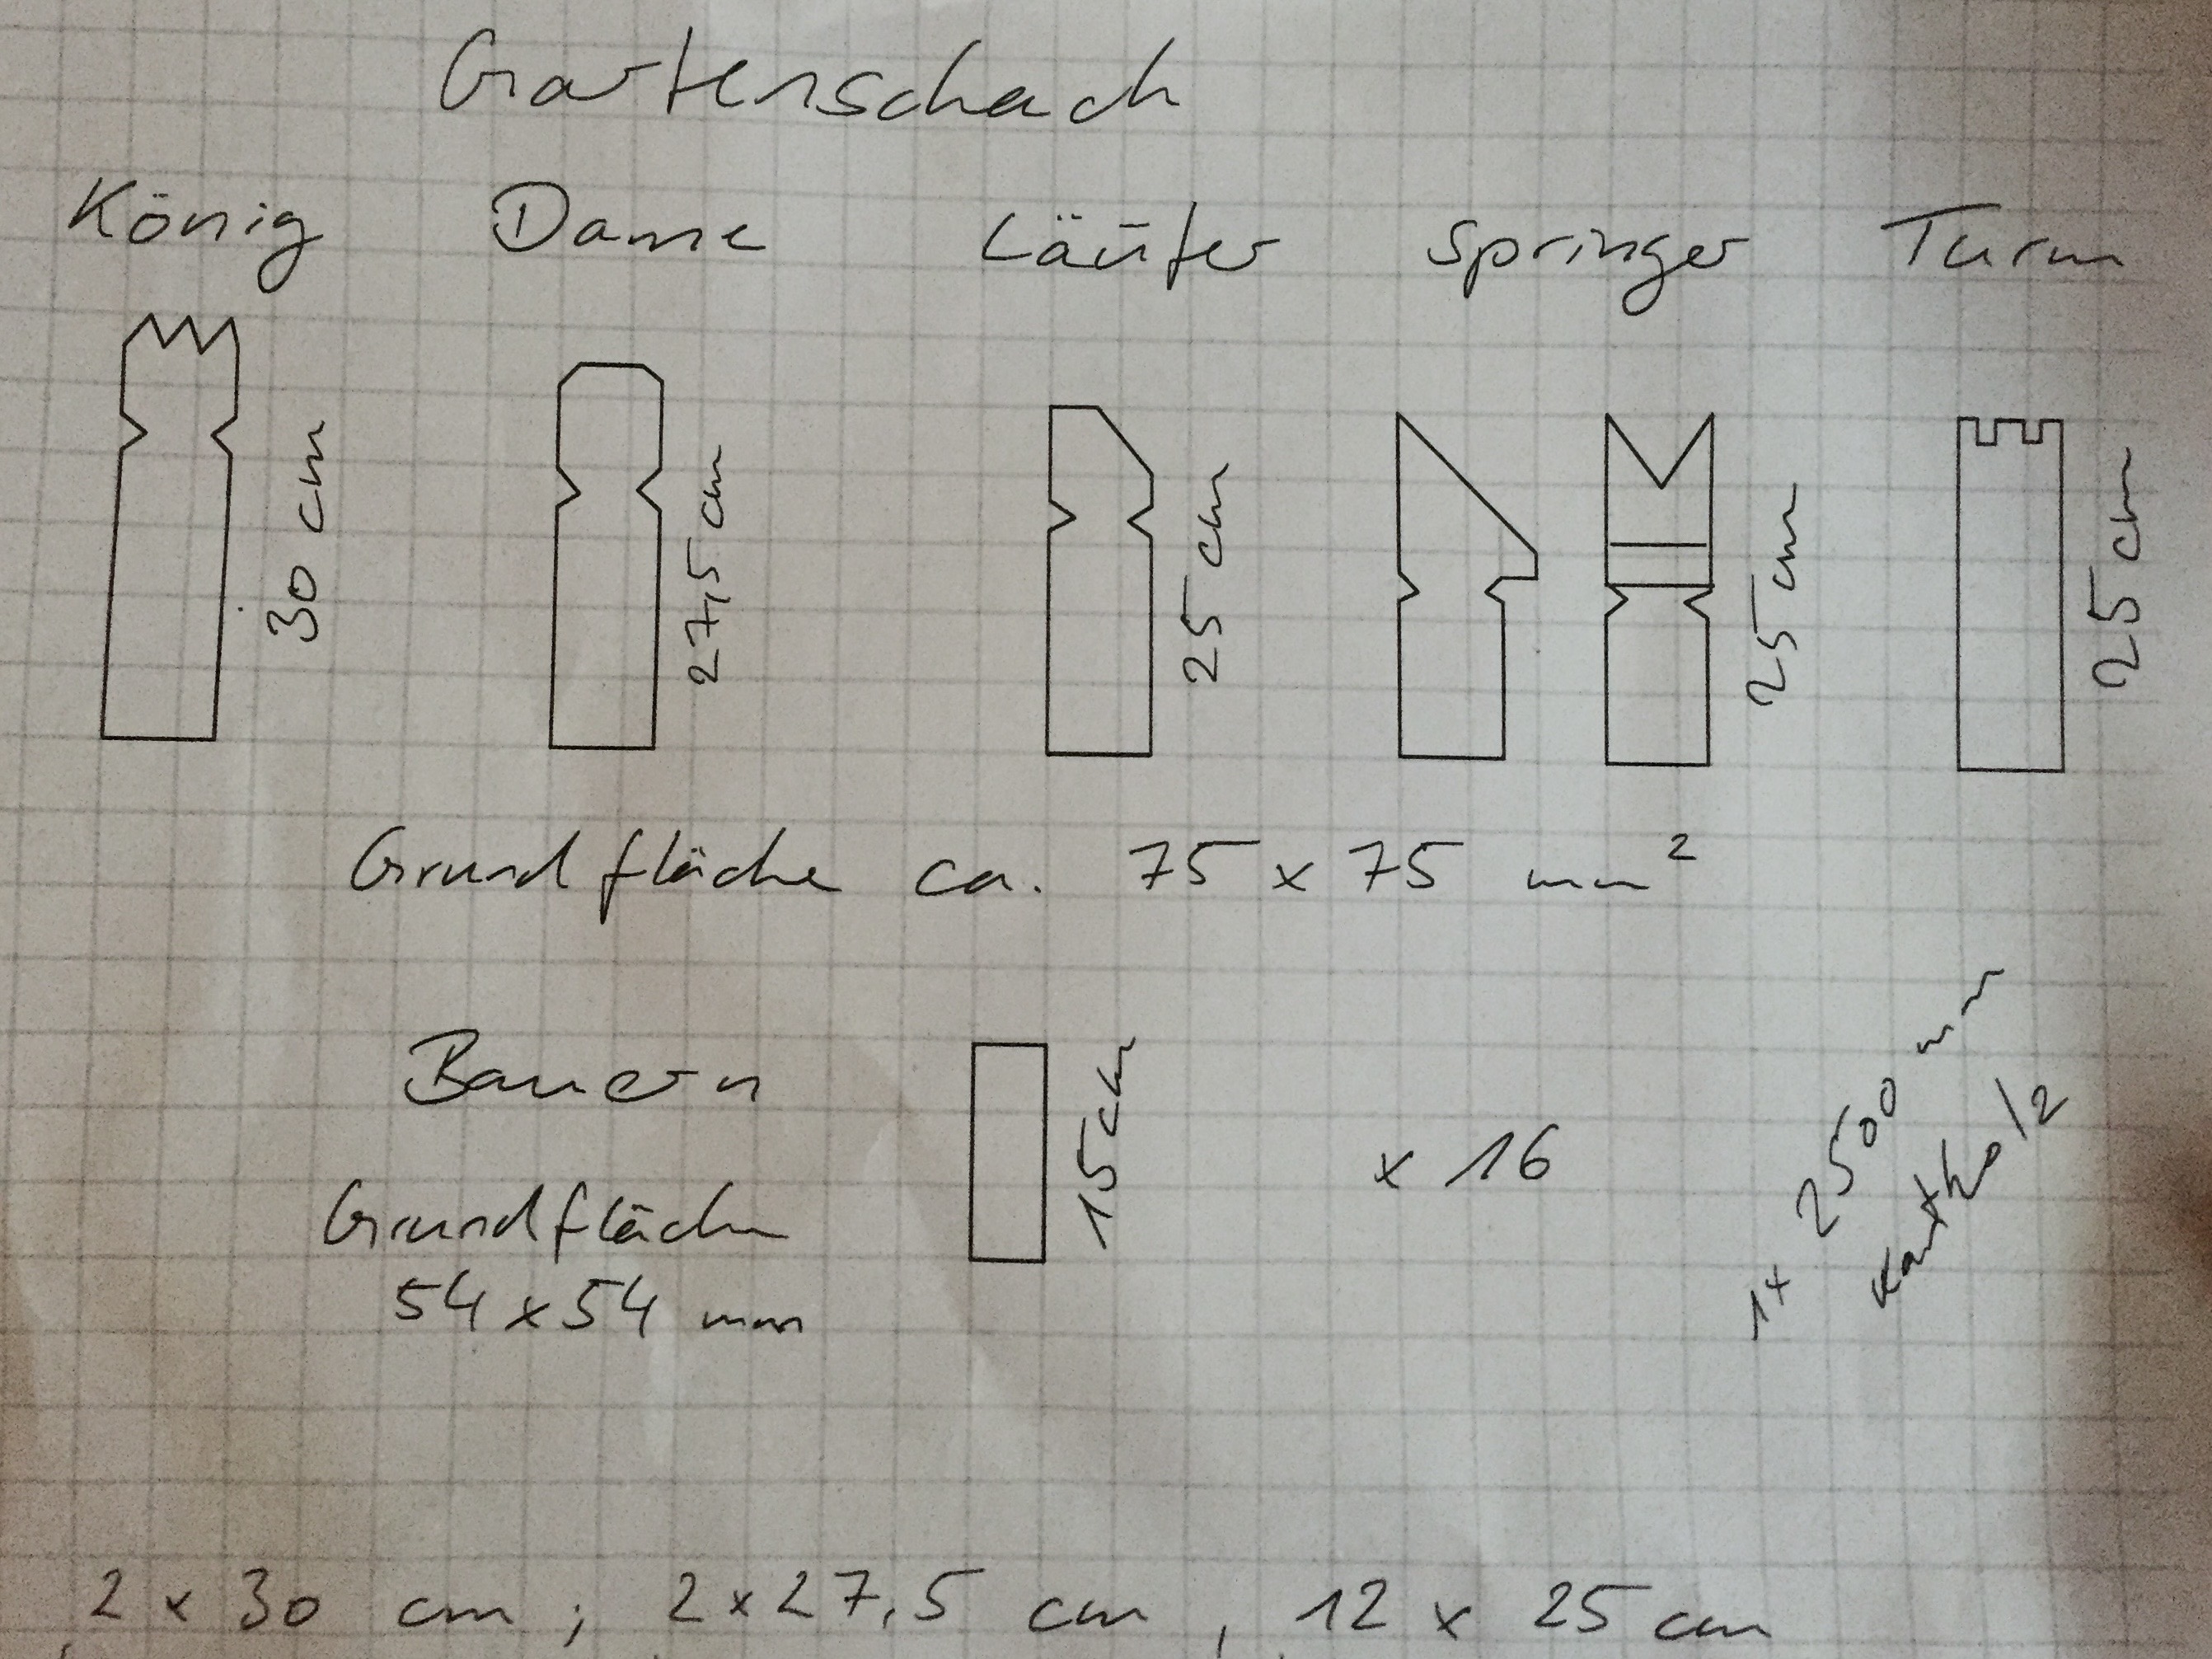 Gartenschach
König Dame Läufer Springer Turm
30 cm
27,5 cm
25 cm
25 cm
25 cm
Grundfläche ca. 75 x 75 mm²
Bauern
15 cm
x 16
1x 2500 mm
Kantholz
Grundfläche
54 x 54 mm
2 x 30 cm ; 2 x 27,5 cm , 12 x 25 cm